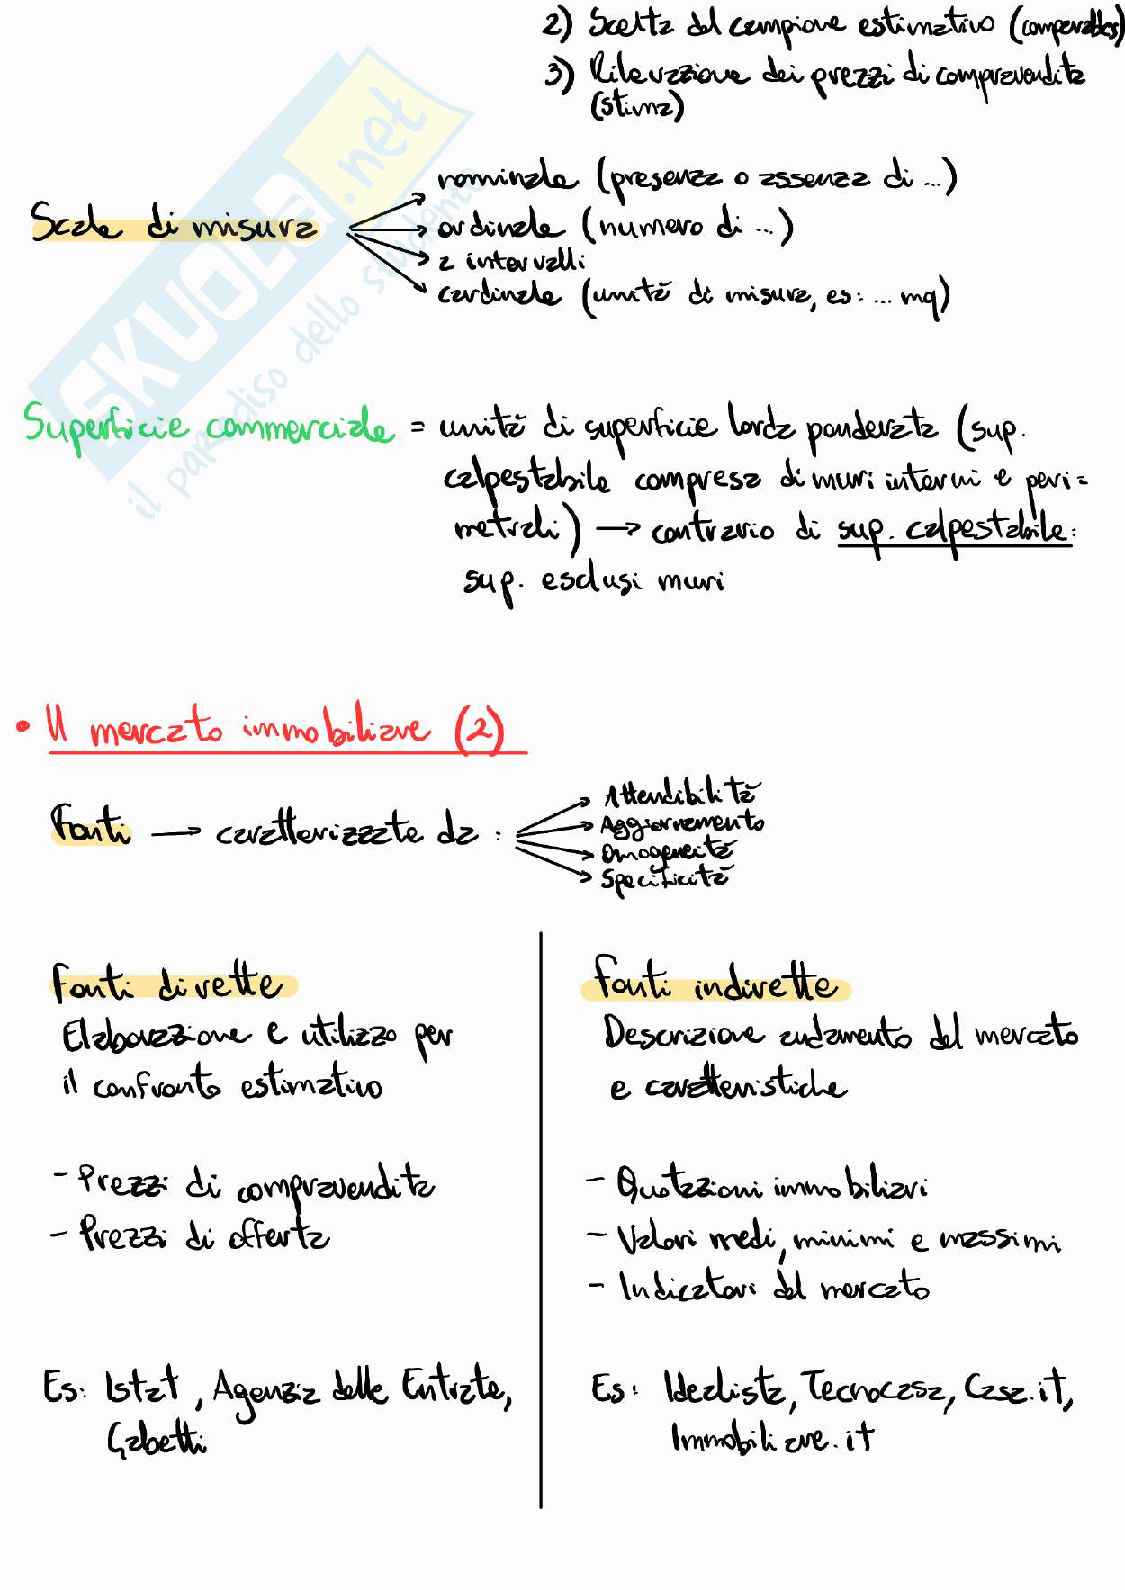 2) Scelta del campione estimativo (comparables)
3) Rilevazione dei prezzi di compravendita
(stima)
Scale di misura
nominale (presenza o assenza di ...)
ordinale (numero di ...)
a intervalli
cardinale (unità di misura, es: ... mq)
Superficie commerciale = unità di superficie lorda ponderata (sup.
calpestabile compresa di muri interni e peri=
metrali) → contrario di sup. calpestabile:
sup. esclusi muri
• Il mercato immobiliare (2)
Fonti → caratterizzate da :
Attendibilità
Aggiornamento
Omogeneità
Specificità
Fonti dirette
Elaborazione e utilizzo per
il confronto estimativo
- Prezzi di compravendita
- Prezzi di offerta
Es: Istat, Agenzia delle Entrate,
Gabetti
Fonti indirette
Descrizione andamento del mercato
e caratteristiche
- Quotazioni immobiliari
- Valori medi, minimi e massimi
- Indicatori del mercato
Es: Idealista, Tecnocasa, Casa.it,
Immobiliare.it
SKUOLA.net
il paradiso dello studente